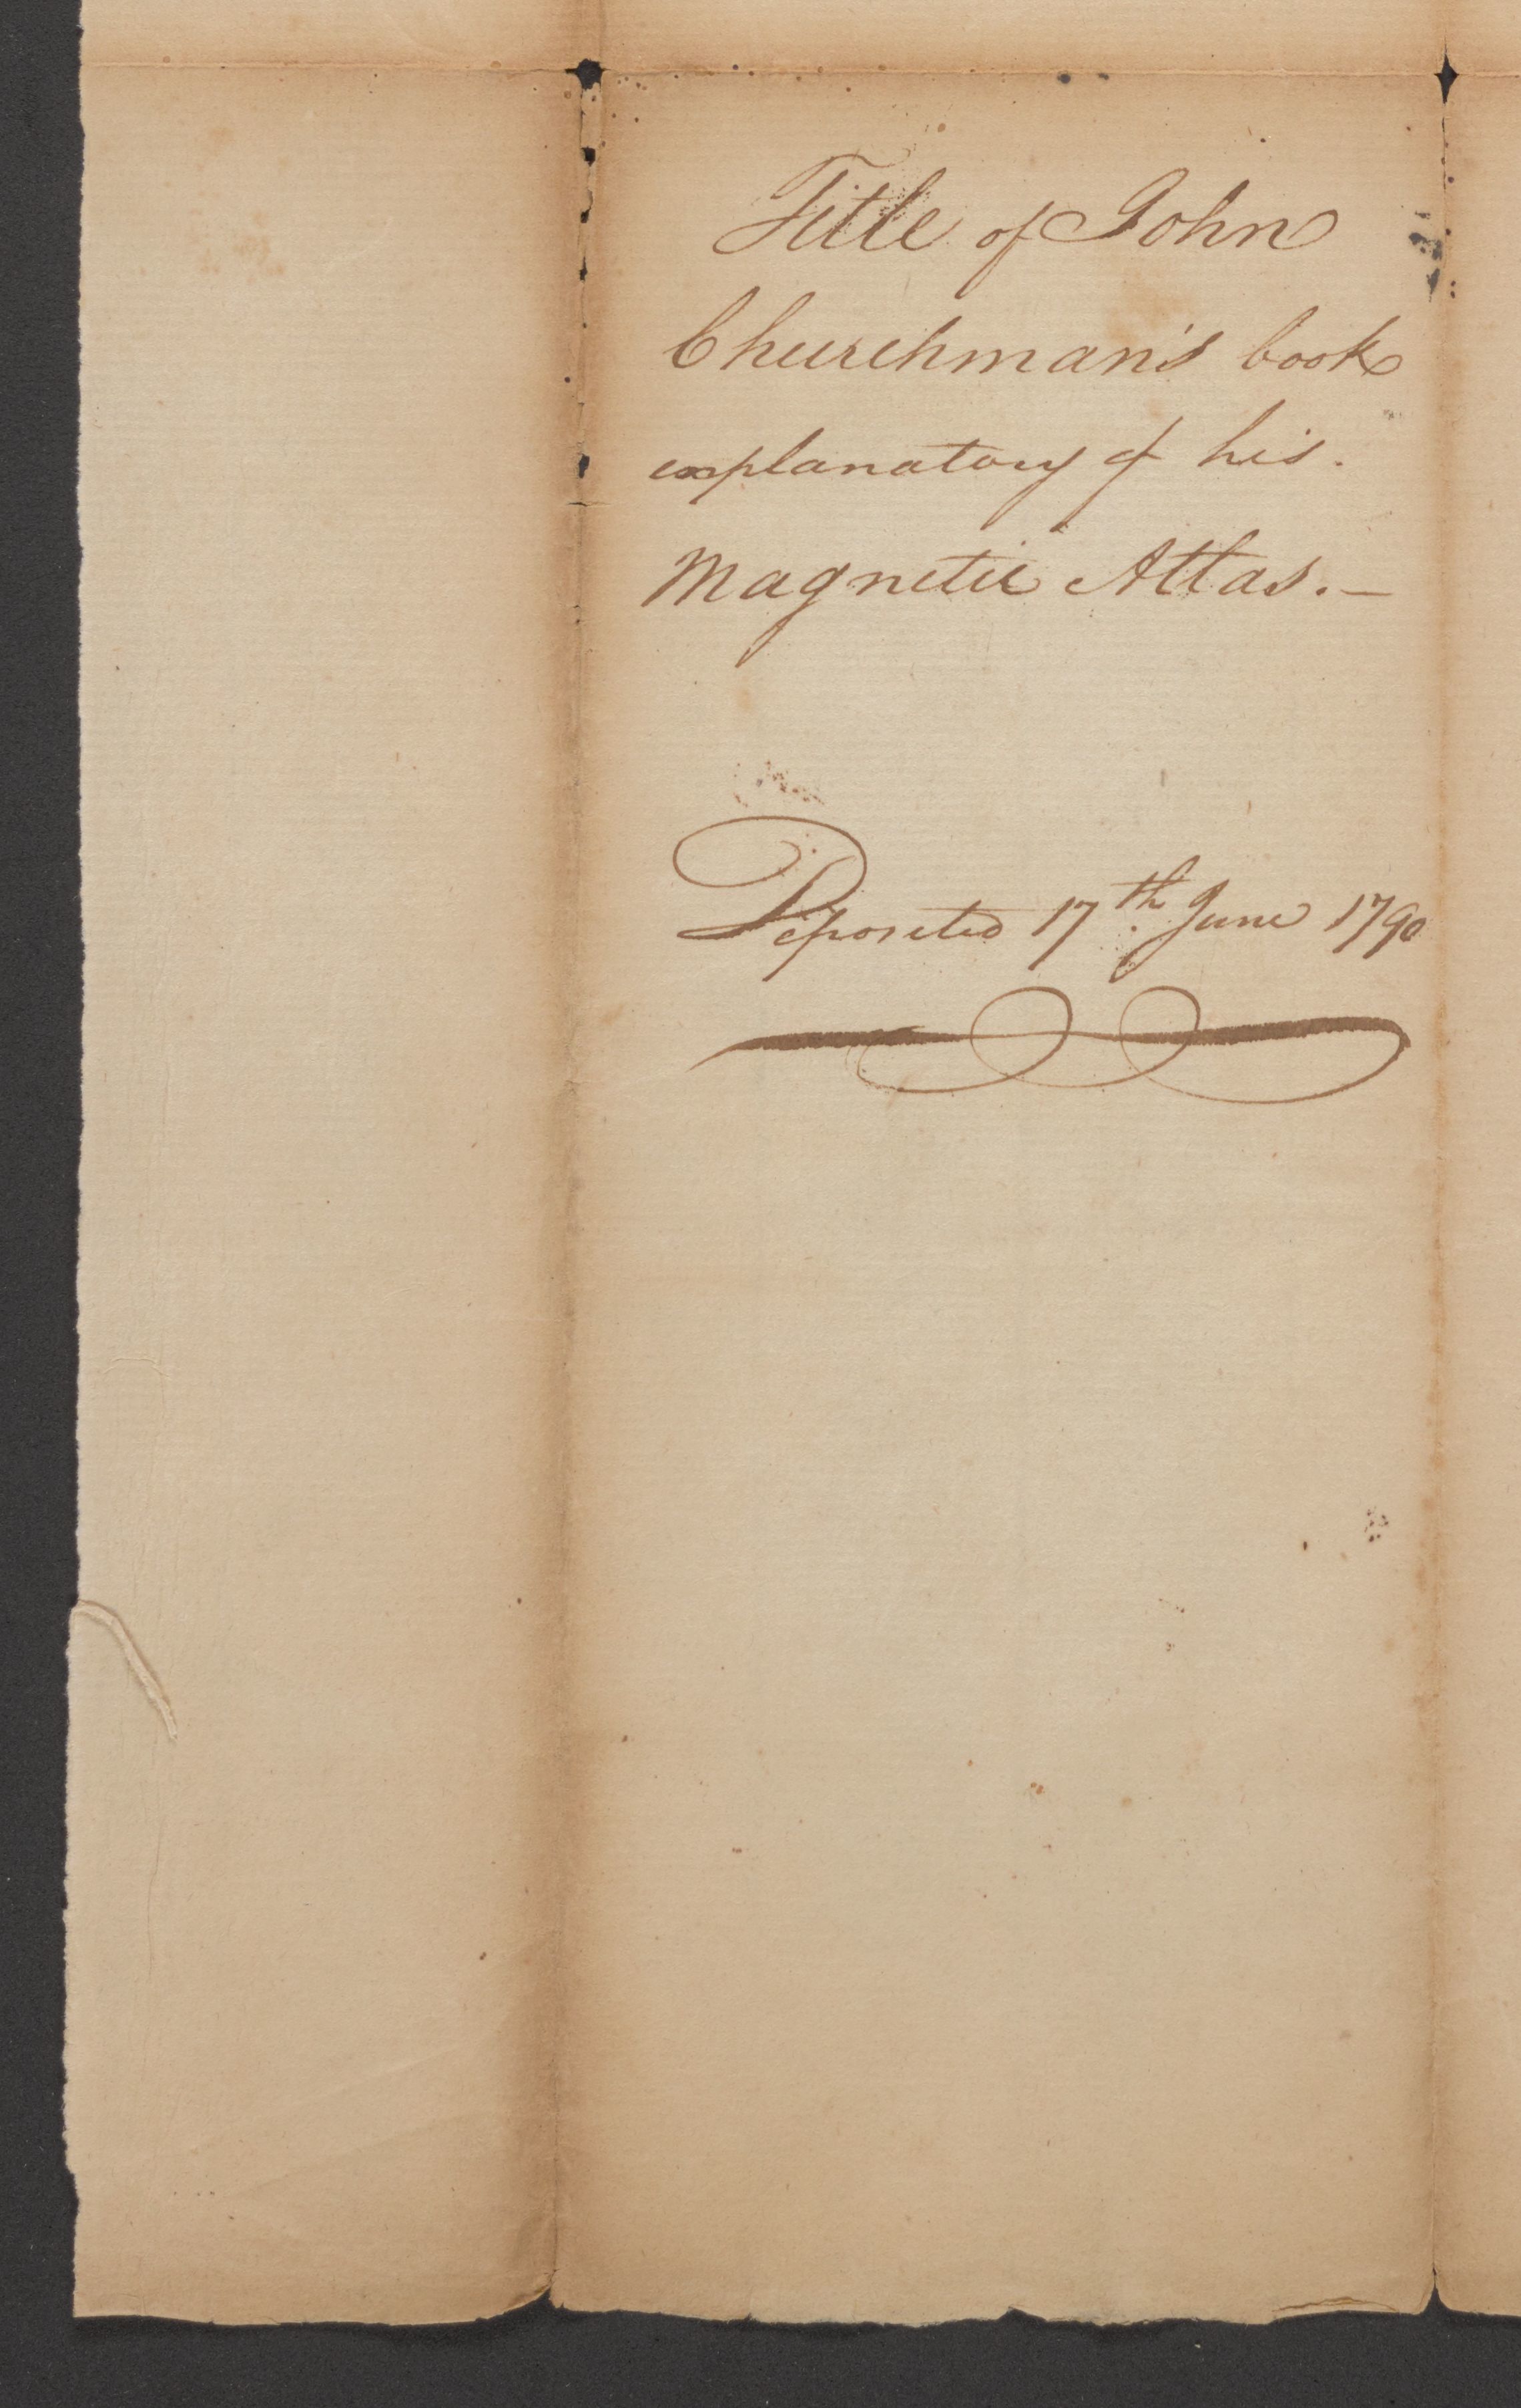 Title of John
Churchman's book
explanatory of his.
Magnetic Atlas.—
Deposited 17th. June 1790